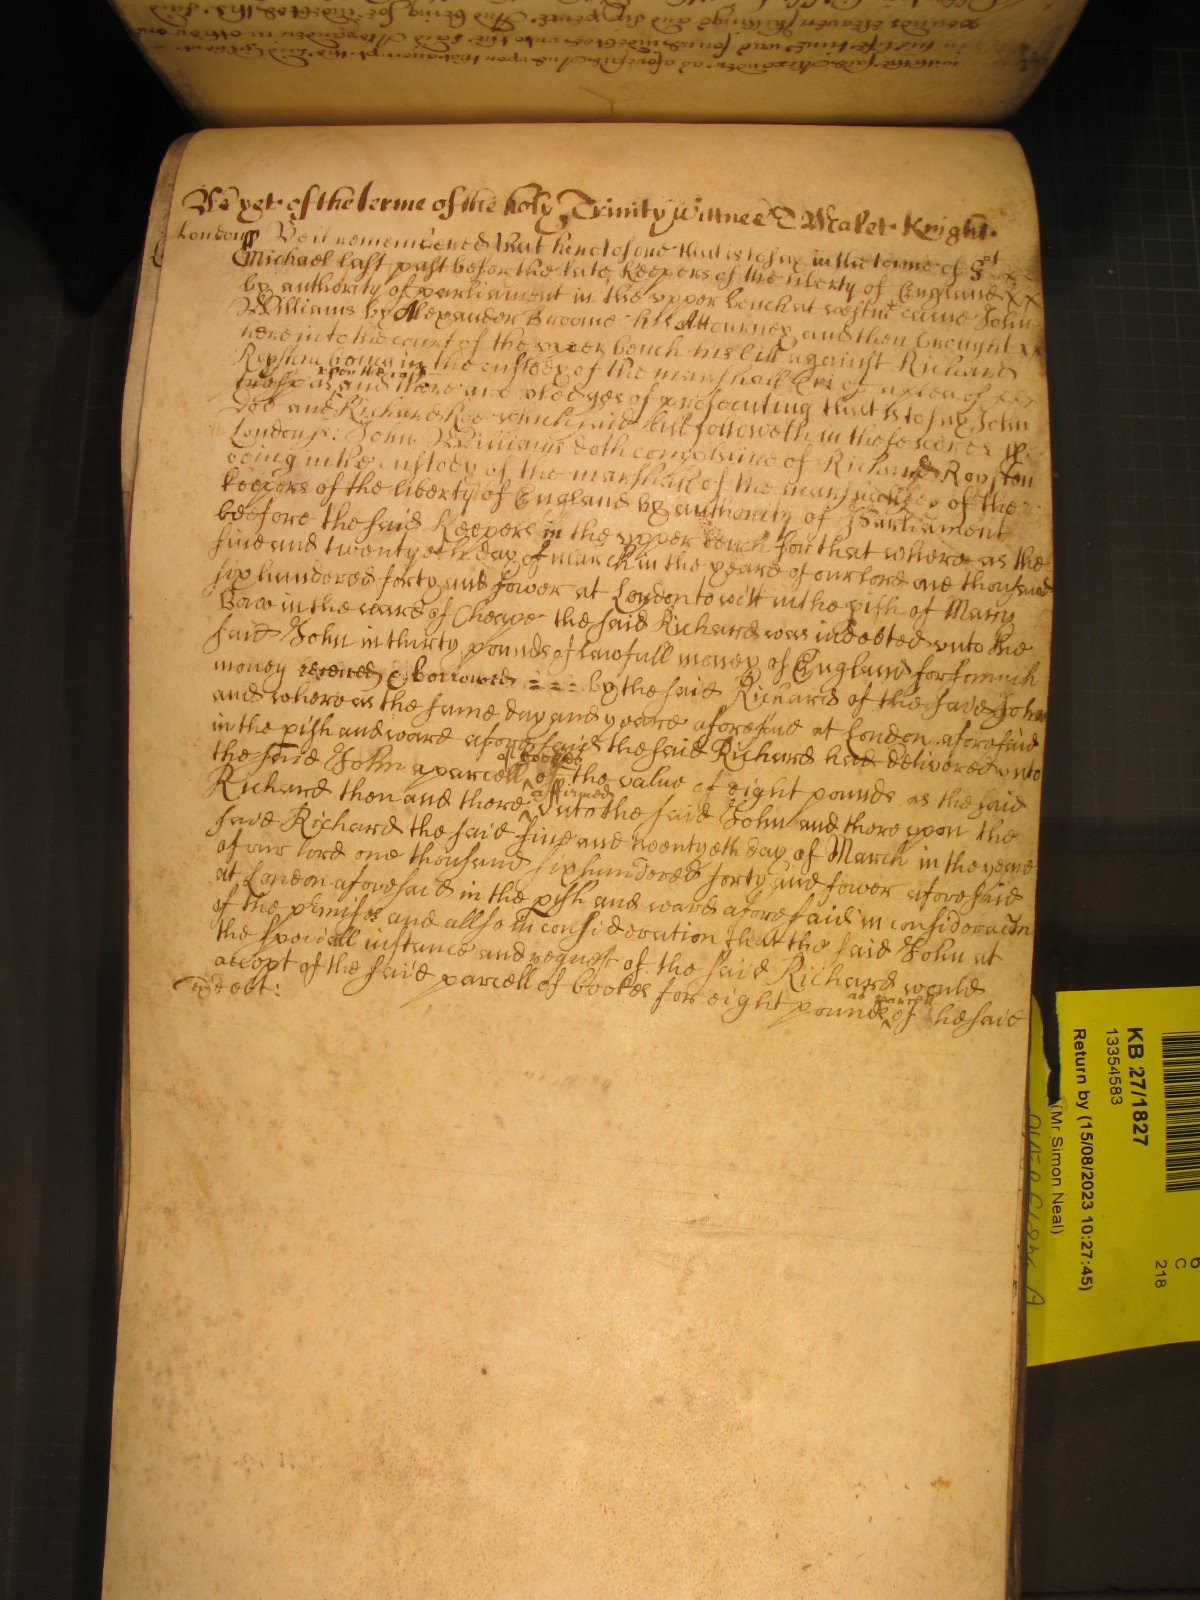 As yet of the terme of the holy Trinity wittnes T Malet Knight.
London ss Be it remembered that heretofore that is to say in the terme of St
Michael last past before the late Keepers of the liberty of England
by authority of parliament in the upper bench at westmr came John
Williams by Alexander Broome his Attourney and then brought
here into the court of the upper bench his bill against Richard
Royston being in the custody of the marshall &c of a plea of
trespas upon the case and there are pledges of prosecuting that is to say John
Doe and Richard Roe which said bill followeth in these words ss
London ss: John Williams doth complaine of Richard Royston
being in the custody of the marshall of the marshalsey of the
keepers of the liberty of England by authority of Parliament
before the said Keepers in the upper bench for that where as the
five and twentyeth day of march in the yeare of our lord one thousand
six hundered forty and fower at London to witt in the pish of Mary
Bow in the ward of Cheape the said Richard was indebted unto the
said John in thirty pounds of lawfull money of England for so much
money borrowed by the said Richard of the said John
and whereas the same day and yeare aforesaid at London aforesaid
in the pish and ward aforesaid the said Richard had delivered unto
the said John a parcell of bookes of the value of eight pounds as the said
Richard then and there affirmed unto the said John and there upon the
said Richard the said five and twentyeth day of March in the yeare
of our lord one thousand six hundered forty and fower aforesaid
at London aforesaid in the pish and ward aforesaid in consideracon
of the pmises and allso in consideration that the said John at
the speciall instance and request of the said Richard would
accept of the said parcell of bookes for eight pounds as parcell of the said
debt:
KB 27/1827
13354583
Return by (15/08/2023 10:27:45)
(Mr Simon Neal)
6
C
218